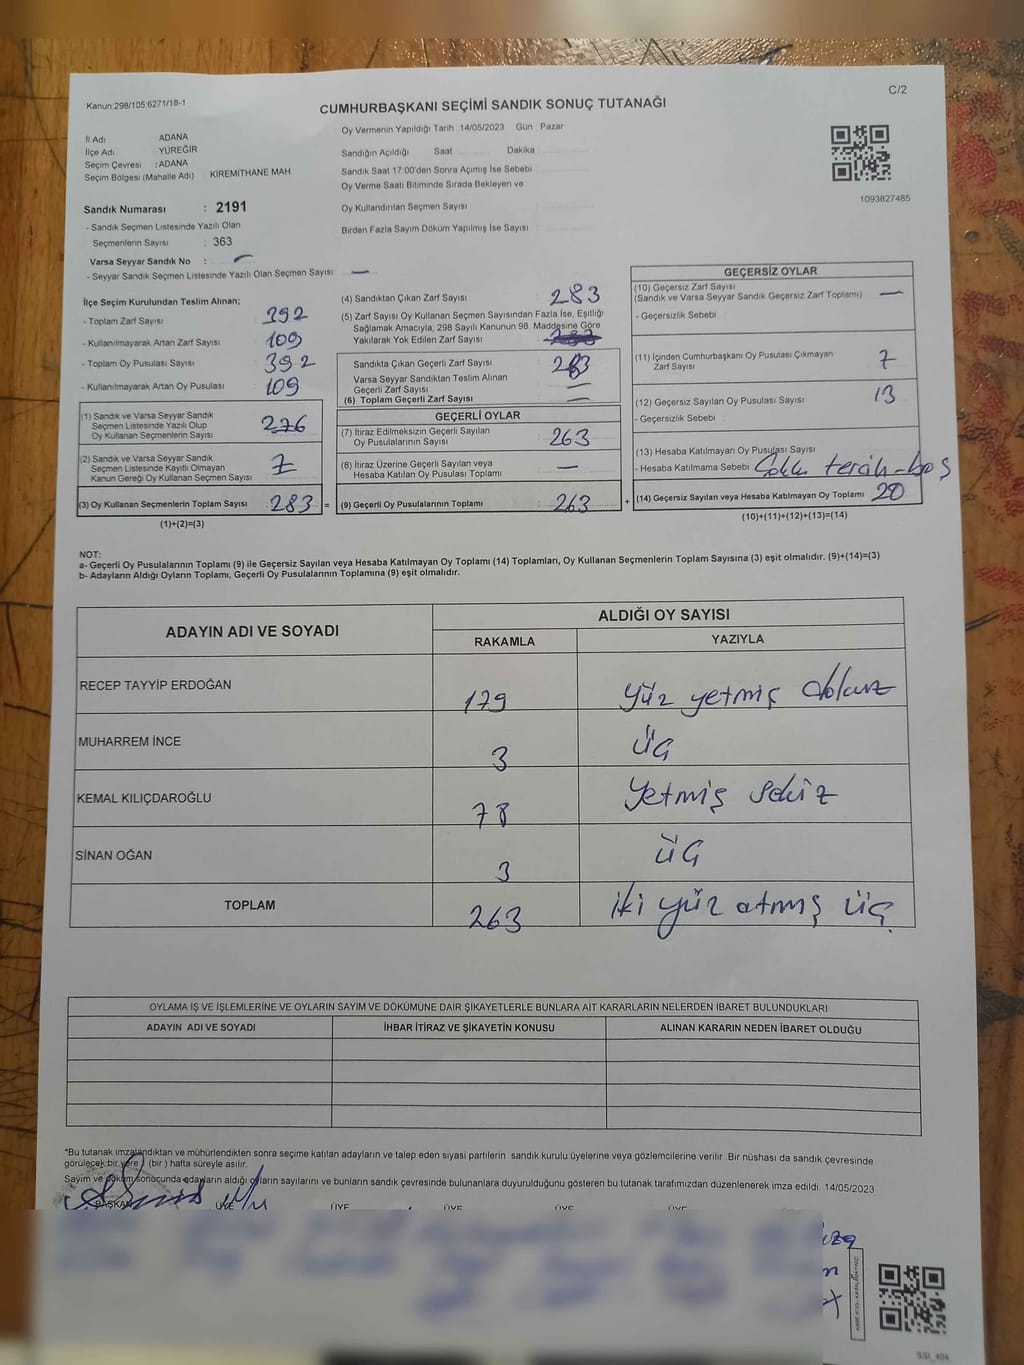 Kanun:298/105;6271/18-1
C/2
CUMHURBAŞKANI SEÇİMİ SANDIK SONUÇ TUTANAĞI
İl Adı ADANA
İlçe Adı YÜREĞİR
Seçim Çevresi : ADANA
Seçim Bölgesi (Mahalle Adı) KİREMİTHANE MAH
Oy Vermenin Yapıldığı Tarih :14/05/2023 Gün : Pazar
Sandığın Açıldığı Saat Dakika
Sandık Saat 17:00'den Sonra Açımış İse Sebebi
Oy Verme Saati Bitiminde Sırada Bekleyen ve
Oy Kullandırılan Seçmen Sayısı
Birden Fazla Sayım Döküm Yapılmış İse Sayısı
1093827485
Sandık Numarası : 2191
- Sandık Seçmen Listesinde Yazılı Olan
Seçmenlerin Sayısı : 363
Varsa Seyyar Sandık No : –
- Seyyar Sandık Seçmen Listesinde Yazılı Olan Seçmen Sayısı : –
İlçe Seçim Kurulundan Teslim Alınan;
- Toplam Zarf Sayısı 392
- Kullanılmayarak Artan Zarf Sayısı 109
- Toplam Oy Pusulası Sayısı 392
- Kullanılmayarak Artan Oy Pusulası 109
(1) Sandık ve Varsa Seyyar Sandık
Seçmen Listesinde Yazılı Olup
Oy Kullanan Seçmenlerin Sayısı 276
(2) Sandık ve Varsa Seyyar Sandık
Seçmen Listesinde Kayıtlı Olmayan
Kanun Gereği Oy Kullanan Seçmen Sayısı 7
(3) Oy Kullanan Seçmenlerin Toplam Sayısı : 283 =
(1)+(2)=(3)
(4) Sandıktan Çıkan Zarf Sayısı 283
(5) Zarf Sayısı Oy Kullanan Seçmen Sayısından Fazla İse, Eşitliği
Sağlamak Amacıyla, 298 Sayılı Kanunun 98. Maddesine Göre
Yakılarak Yok Edilen Zarf Sayısı
Sandıkta Çıkan Geçerli Zarf Sayısı 283
Varsa Seyyar Sandıktan Teslim Alınan
Geçerli Zarf Sayısı –
(6) Toplam Geçerli Zarf Sayısı –
GEÇERLİ OYLAR
(7) İtiraz Edilmeksizin Geçerli Sayılan
Oy Pusulalarının Sayısı 263
(8) İtiraz Üzerine Geçerli Sayılan veya
Hesaba Katılan Oy Pusulası Toplamı –
(9) Geçerli Oy Pusulalarının Toplamı 263 +
GEÇERSİZ OYLAR
(10) Geçersiz Zarf Sayısı
(Sandık ve Varsa Seyyar Sandık Geçersiz Zarf Toplamı) –
- Geçersizlik Sebebi :
(11) İçinden Cumhurbaşkanı Oy Pusulası Çıkmayan
Zarf Sayısı 7
(12) Geçersiz Sayılan Oy Pusulası Sayısı 13
- Geçersizlik Sebebi :
(13) Hesaba Katılmayan Oy Pusulası Sayısı
- Hesaba Katılmama Sebebi tercih-boş
(14) Geçersiz Sayılan veya Hesaba Katılmayan Oy Toplamı 20
(10)+(11)+(12)+(13)=(14)
NOT:
a- Geçerli Oy Pusulalarının Toplamı (9) ile Geçersiz Sayılan veya Hesaba Katılmayan Oy Toplamı (14) Toplamları, Oy Kullanan Seçmenlerin Toplam Sayısına (3) eşit olmalıdır. (9)+(14)=(3)
b- Adayların Aldığı Oyların Toplamı, Geçerli Oy Pusulalarının Toplamına (9) eşit olmalıdır.
ADAYIN ADI VE SOYADI ALDIĞI OY SAYISI
RAKAMLA YAZIYLA
RECEP TAYYİP ERDOĞAN 179 yüz yetmiş dokuz
MUHARREM İNCE 3 üç
KEMAL KILIÇDAROĞLU 78 yetmiş sekiz
SİNAN OĞAN 3 üç
TOPLAM 263 iki yüz atmış üç
OYLAMA İŞ VE İŞLEMLERİNE VE OYLARIN SAYIM VE DÖKÜMÜNE DAİR ŞİKAYETLERLE BUNLARA AİT KARARLARIN NELERDEN İBARET BULUNDUKLARI
ADAYIN ADI VE SOYADI İHBAR İTİRAZ VE ŞİKAYETİN KONUSU ALINAN KARARIN NEDEN İBARET OLDUĞU
*Bu tutanak imzalandıktan ve mühürlendikten sonra seçime katılan adayların ve talep eden siyasi partilerin sandık kurulu üyelerine veya gözlemcilerine verilir. Bir nüshası da sandık çevresinde
görülecek bir yere 1 (bir ) hafta süreyle asılır.
Sayım ve döküm sonucunda adayların aldığı oyların sayılarını ve bunların sandık çevresinde bulunanlara duyurulduğunu gösteren bu tutanak tarafımızdan düzenlenerek imza edildi. 14/05/2023
BAŞKAN ÜYE ÜYE ÜYE ÜYE ÜYE